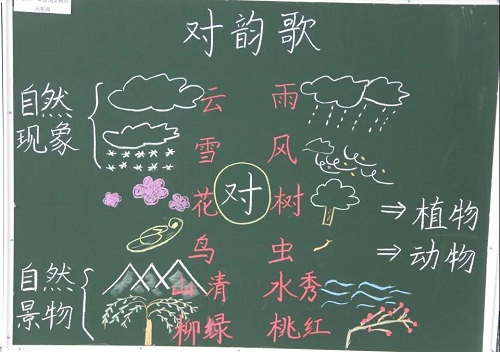 对韵歌
自然
现象
云 雨
雪 风
花 对 树
⇒ 植物
鸟 虫
⇒ 动物
自然
景物
山清 水秀
柳绿 桃红